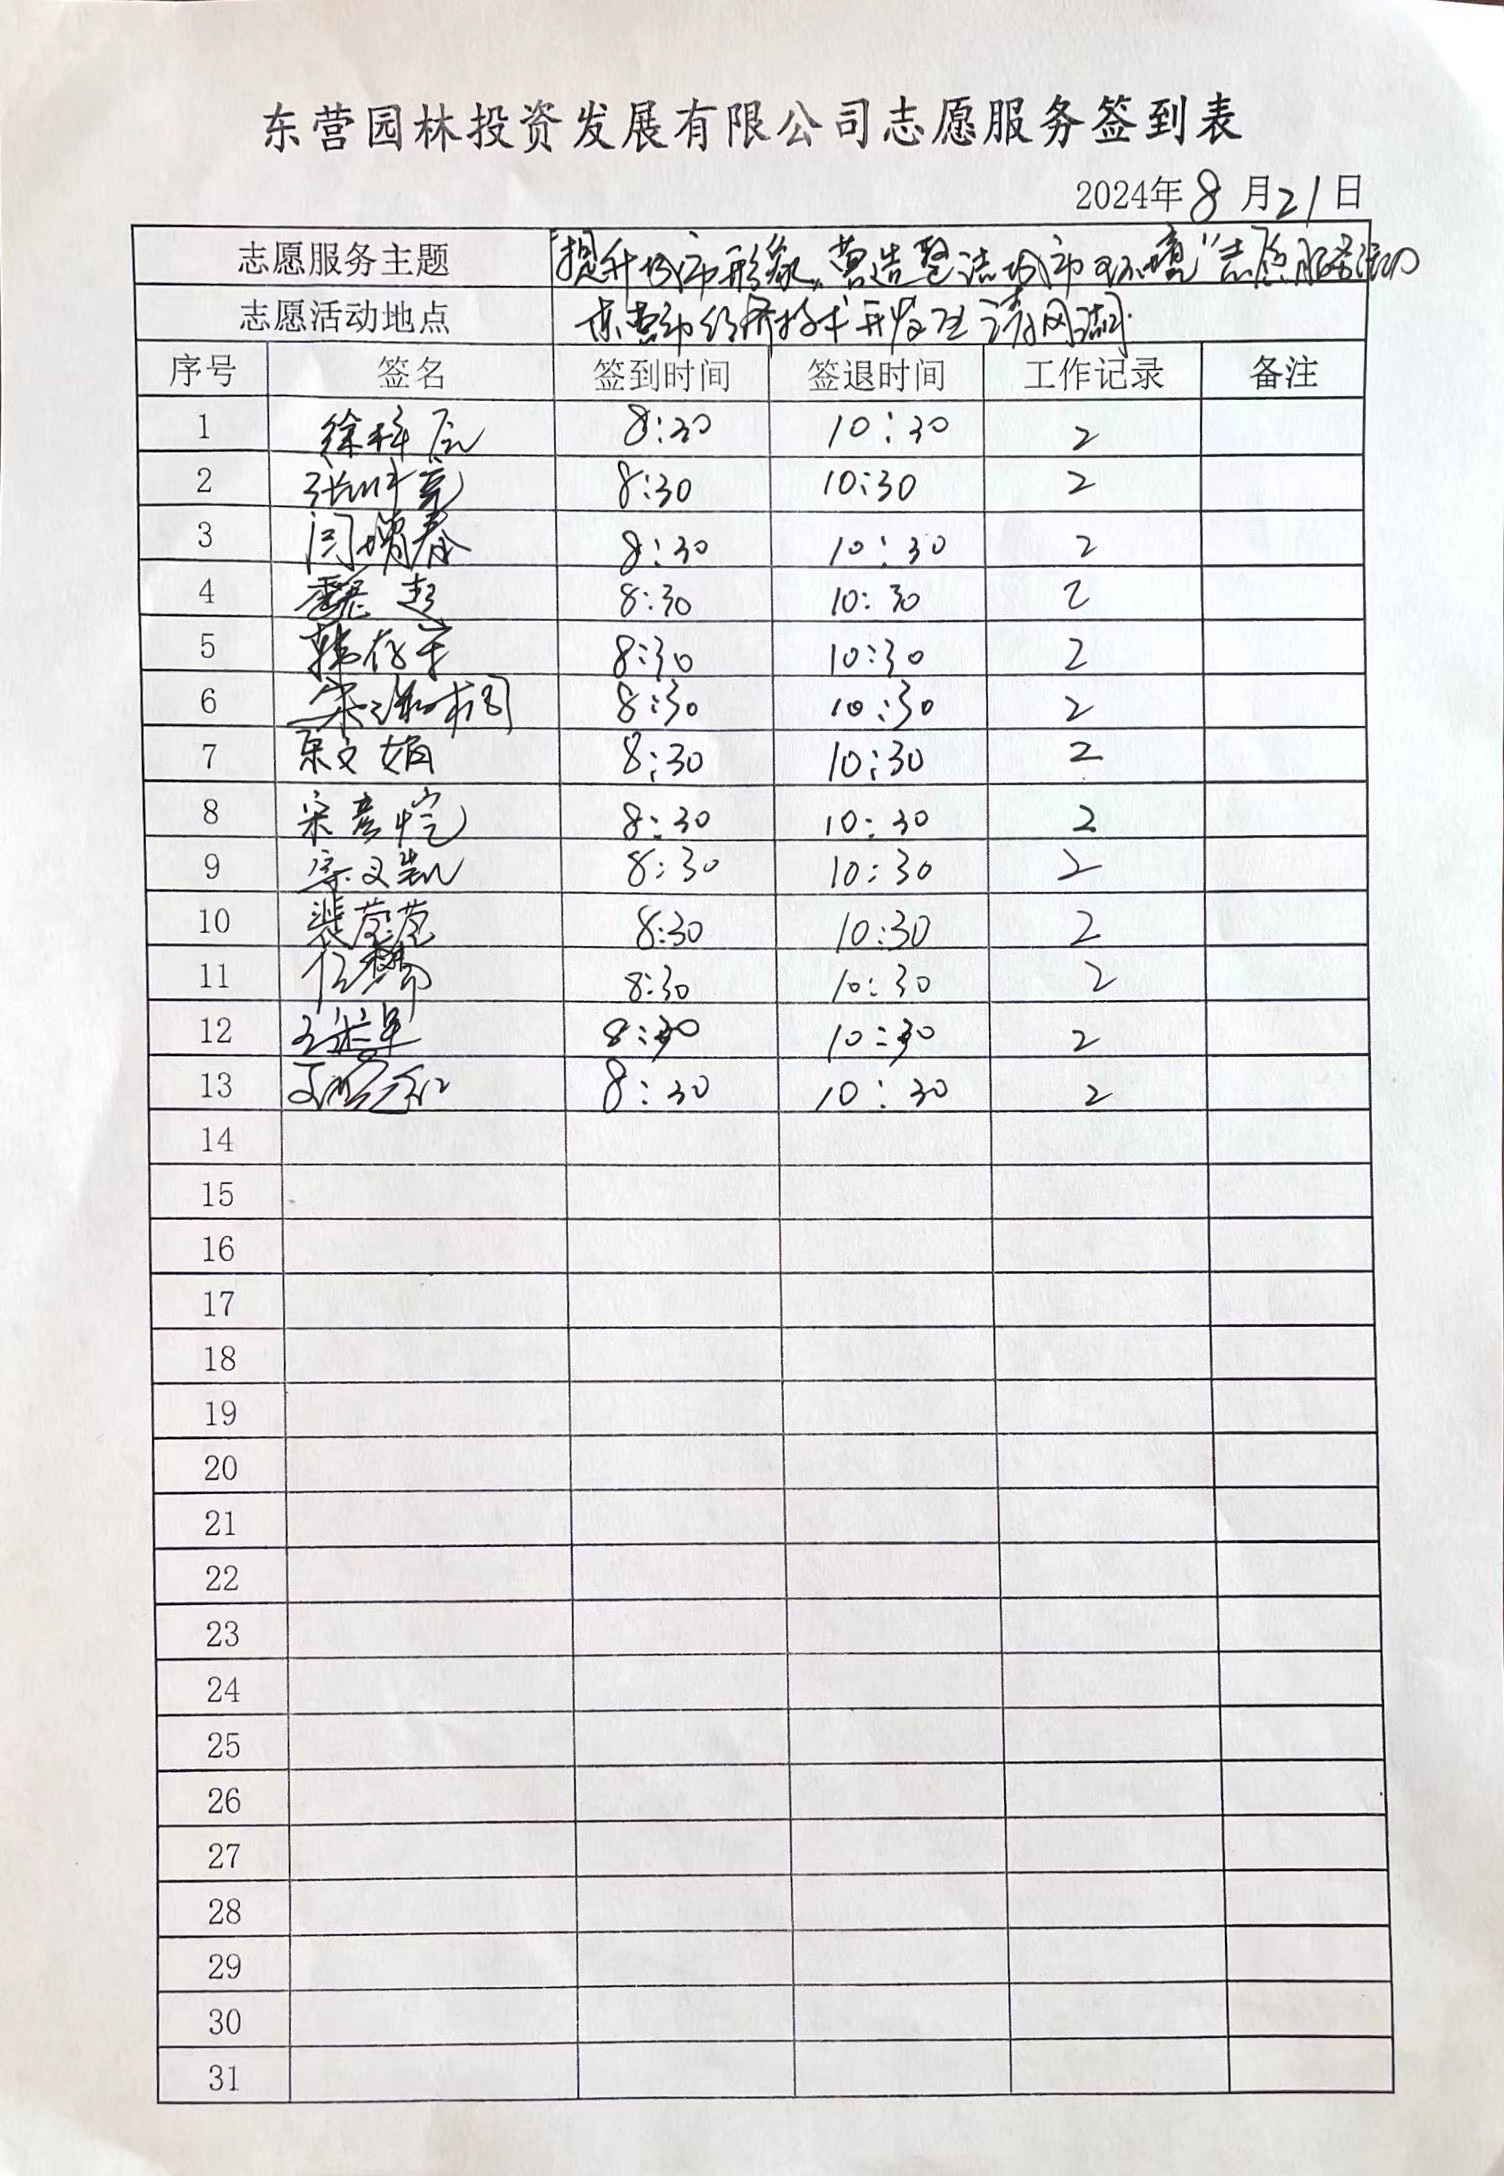 东营园林投资发展有限公司志愿服务签到表
2024年8月21日
志愿服务主题 “提升城市形象,营造整洁城市环境”志愿服务活动
志愿活动地点 东营市经济技术开发区清风湖
序号 签名 签到时间 签退时间 工作记录 备注
1 徐 8:30 10:30 2
2 张 8:30 10:30 2
3 闫增春 8:30 10:30 2
4 魏超 8:30 10:30 2
5 韩存 8:30 10:30 2
6 宋 8:30 10:30 2
7 文娟 8:30 10:30 2
8 宋彦恺 8:30 10:30 2
9 宋文凯 8:30 10:30 2
10 裴莹莹 8:30 10:30 2
11 任 8:30 10:30 2
12 王 8:30 10:30 2
13 8:30 10:30 2
14
15
16
17
18
19
20
21
22
23
24
25
26
27
28
29
30
31